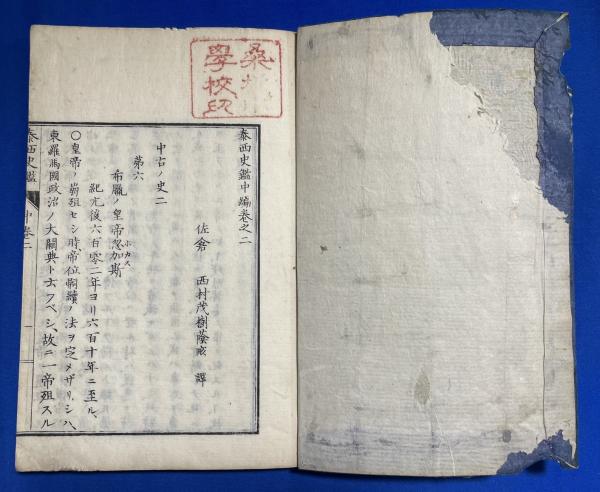 桑
學校印
泰西史鑑中編卷之二
佐倉 西村茂樹 譯
中古ノ史二
第六
希臘ノ皇帝忽加斯
ホカス
紀元後六百零二年ヨリ六百十年ニ至ル、
〇皇帝ノ崩殂セシ時、帝位嗣續ノ法ヲ定メザリシハ、
東羅馬國政治ノ大闕典ト云フベシ、故ニ一帝殂スル
泰西史鑑
中卷二
一